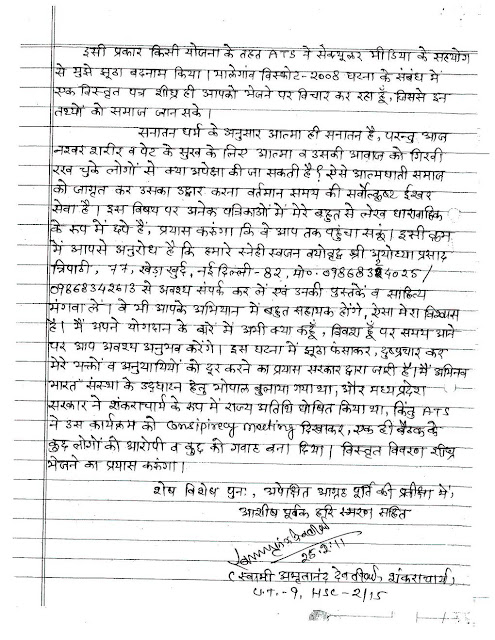 इसी प्रकार किसी योजना के तहत ATS ने सेक्यूलर मीडिया के सहयोग
से मुझे झूठा बदनाम किया। मालेगाँव विस्फोट-2008 घटना के संबंध में
एक विस्तृत पत्र शीघ्र ही आपको भेजने पर विचार कर रहा हूँ, जिससे इन
तथ्यों को समाज जान सके।
सनातन धर्म के अनुसार आत्मा ही सनातन है, परन्तु आज
नश्वर शरीर व पेट के सुख के लिए आत्मा व उसकी आवाज को गिरवी
रख चुके लोगों से क्या अपेक्षा की जा सकती है? ऐसे आत्मघाती समाज
को जागृत कर उसका उद्धार करना वर्तमान समय की सर्वोत्कृष्ट ईश्वर
सेवा है। इस विषय पर अनेक पत्रिकाओं में मेरे बहुत से लेख धारावाहिक
के रूप में छपे हैं, प्रयास करुंगा कि वे आप तक पहुँचा सकूं। इसी क्रम
में आपसे अनुरोध है कि हमारे स्नेही स्वजन वयोवृद्ध श्री अयोध्या प्रसाद
त्रिपाठी, 77, खेड़ा खुर्द, नई दिल्ली-82, मो. 09868324025/
09868342613 से अवश्य संपर्क कर लें एवं उनकी पुस्तकें व साहित्य
मंगवा लें। वे भी आपके अभियान में बहुत सहायक होंगे, ऐसा मेरा विश्वास
है। मैं अपने योगदान के बारे में अभी क्या कहूँ, विवश हूँ पर समय आने
पर आप अवश्य अनुभव करेंगे। इस घटना में झूठा फंसाकर, दुष्प्रचार कर
मेरे भक्तों व अनुयाथियों को दूर करने का प्रयास सरकार द्वारा जारी है। मैं 'अभिनव
भारत' संस्था के उद्घाटन हेतु भोपाल बुलाया गया था, और मध्य प्रदेश
सरकार ने शंकराचार्य के रूप में राज्य अतिथि घोषित किया था, किंतु ATS
ने उस कार्यक्रम को Consipirecy meeting दिखाकर, एक ही बैठक के
कुछ लोगों को आरोपी व कुछ को गवाह बना दिया। विस्तृत विवरण शीघ्र
भेजने का प्रयास करुंगा।
शेष विशेष पुनः, अपेक्षित आग्रह पूर्ति की प्रतीक्षा में,
आशीष पूर्वक हरि स्मरण सहित
25.2.11
(स्वामी अमृतानंद देव तीर्थ, शंकराचार्य)
U.T.-9, HSC-2/15